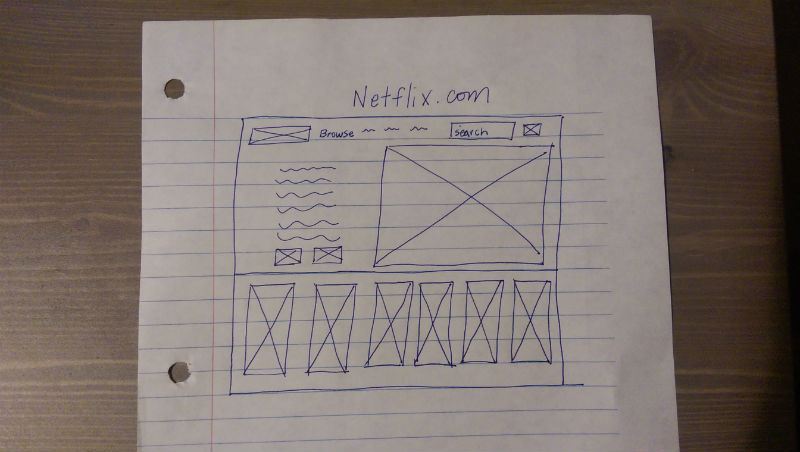 Netflix.com
Browse search